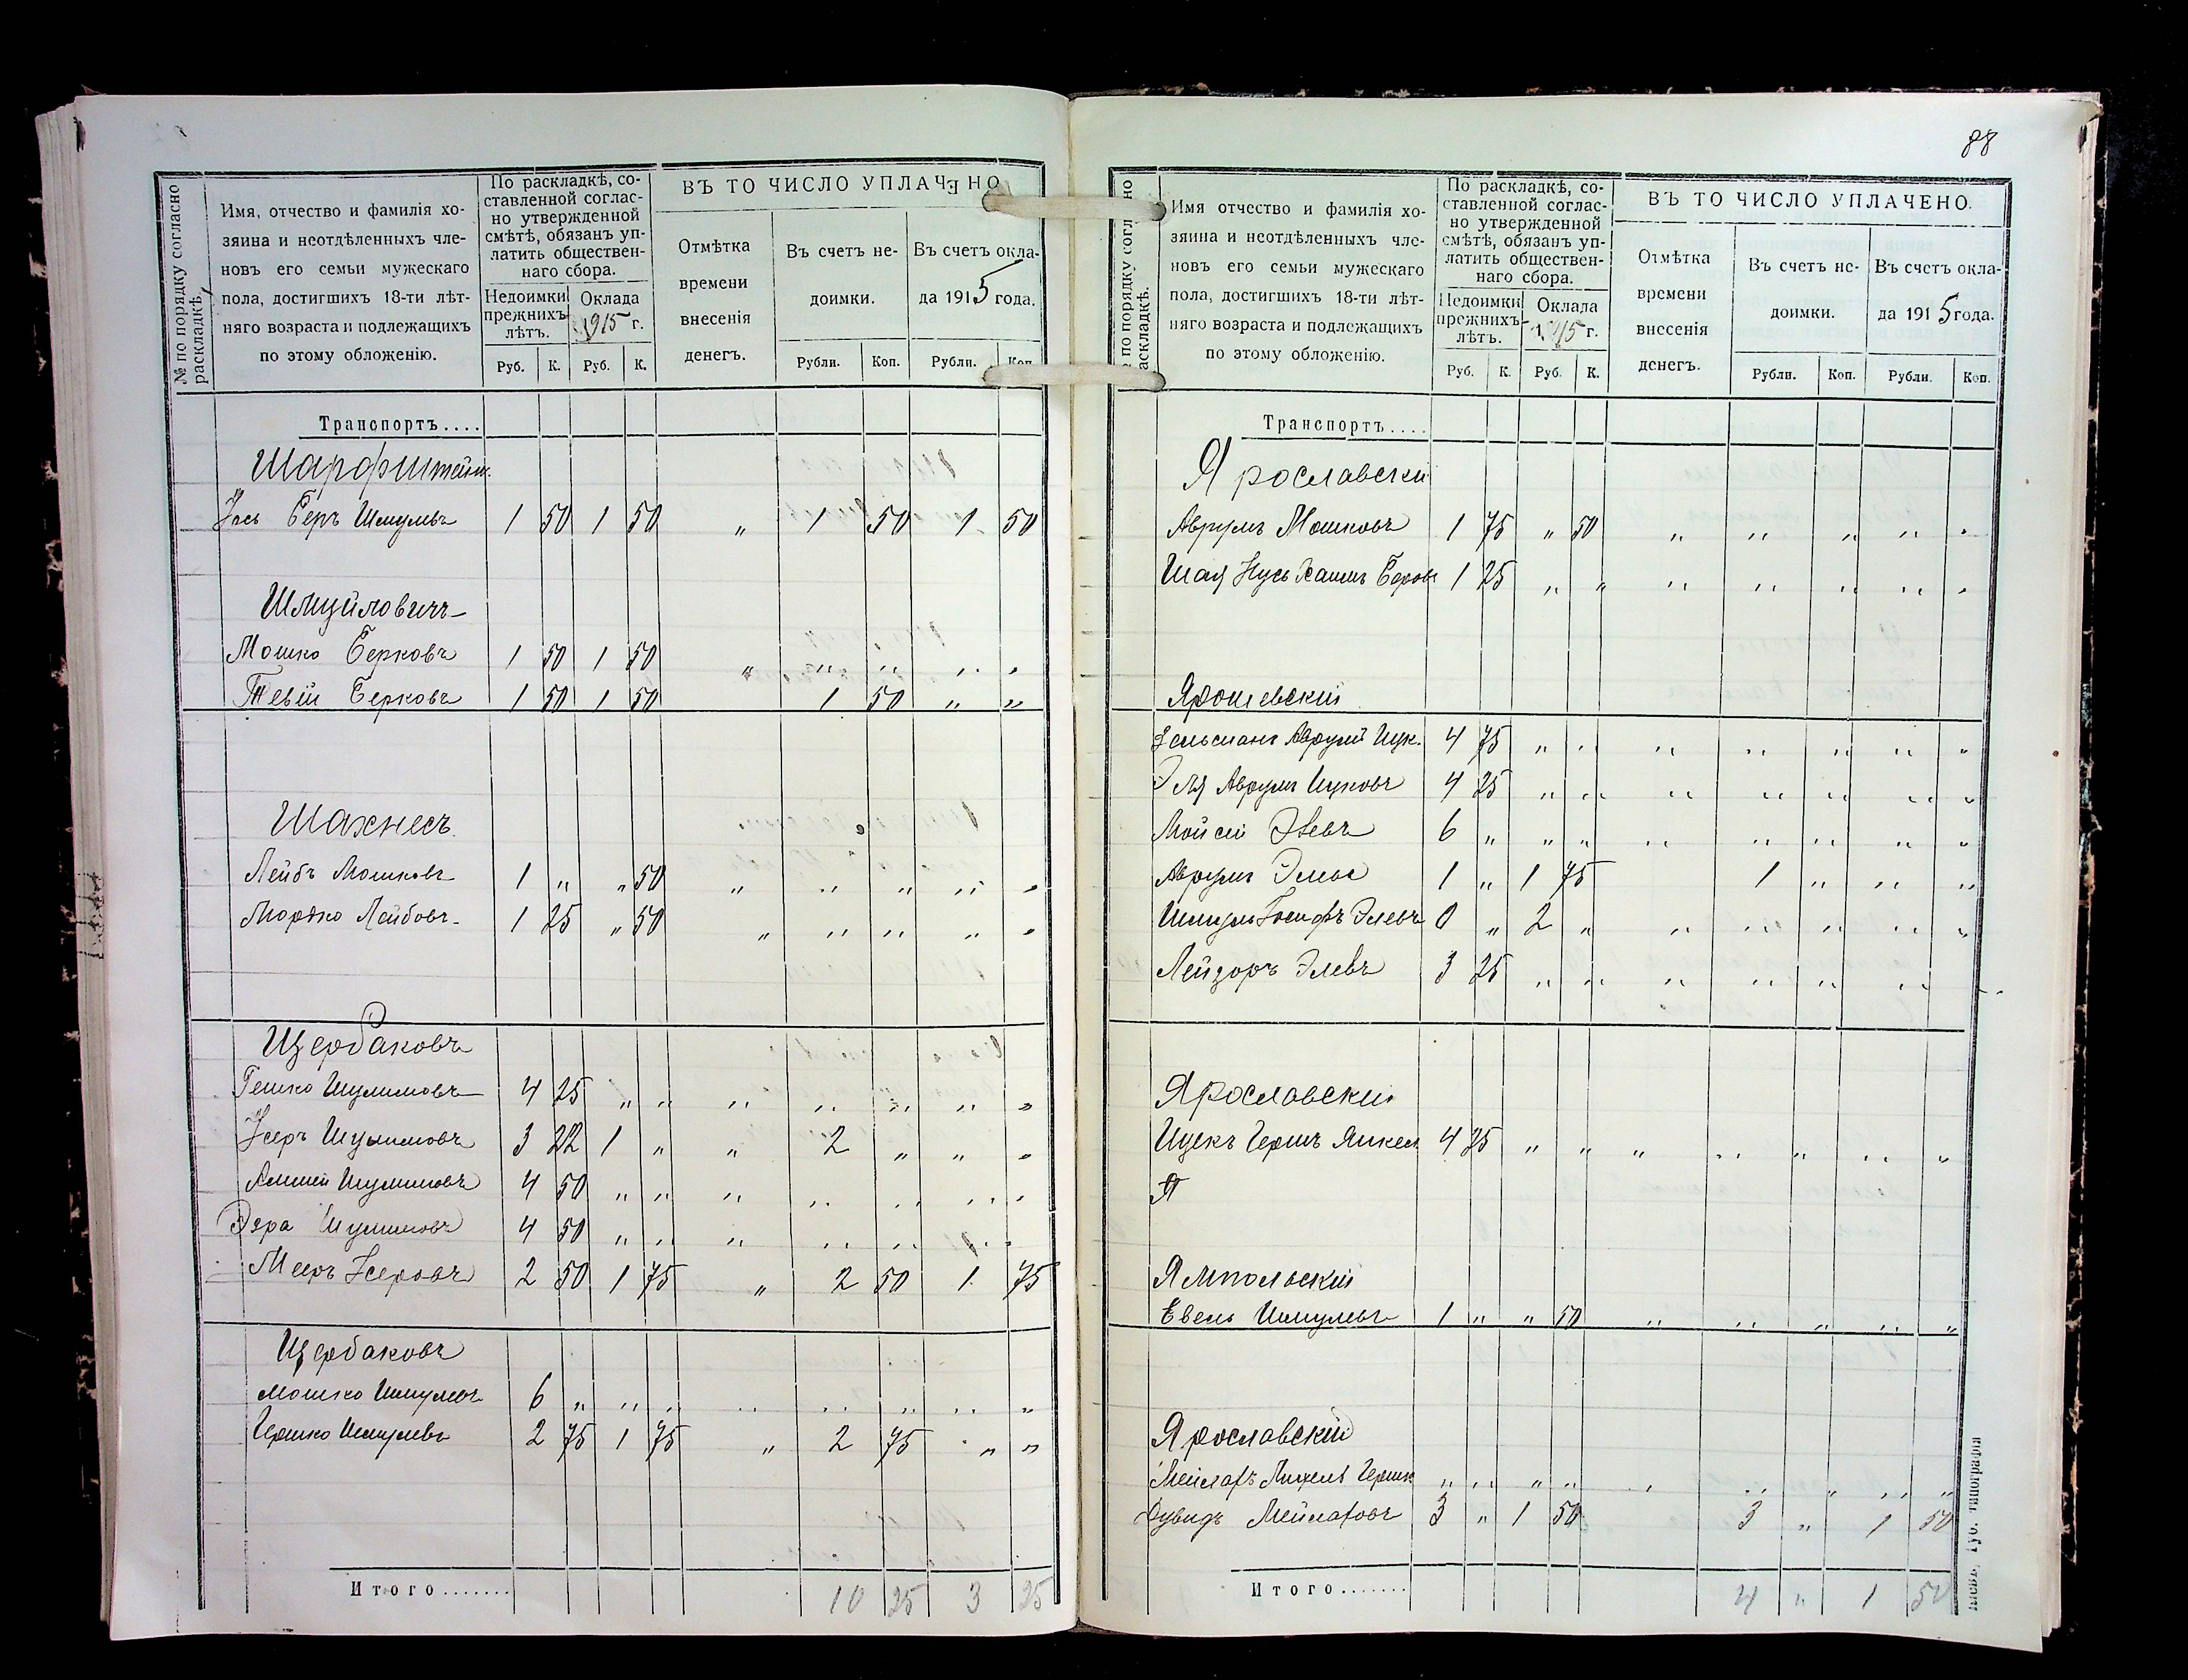 № по порядку согласно раскладкѣ.
Имя, отчество и фамилія хо-
зяина и неотдѣленныхъ чле-
новъ его семьи мужескаго
пола, достигшихъ 18-ти лѣт-
няго возраста и подлежащихъ
по этому обложенію.
По раскладкѣ, со-
ставленной соглас-
но утвержденной
смѣтѣ, обязанъ уп-
латить обществен-
наго сбора.
Недоимки прежнихъ лѣтъ.
Оклада 1915 г.
Руб. К. Руб. К.
ВЪ ТО ЧИСЛО УПЛАЧЕНО
Отмѣтка
времени
внесенія
денегъ.
Въ счетъ не-
доимки.
Въ счетъ окла-
да 1915 года.
Рубли. Коп. Рубли. Коп.
Транспортъ....
Шарфштейн
Берь Шмулевъ 1 50 1 50 „ 1 50 1 50
Шмуйловичъ
Мошко Берковъ 1 50 1 50 „ „ „ „ „
Тевій Берковъ 1 50 1 50 1 50 „ „
Шахнесъ
Лейбъ Мошковъ 1 „ „ 50 „ „ „ „ „
Мордко Лейбовъ 1 25 „ 50 „ „ „ „ „
Щербаковъ
Гешко Шулимовъ 4 25 „ „ „ „ „ „ „
Усеръ Шулимовъ 3 22 1 „ „ 2 „ „ „
Шулимовъ 4 50 „ „ „ „ „ „ „
Эзра Шулимовъ 4 50 „ „ „ „ „ „ „
Мееръ Усеровъ 2 50 1 75 „ 2 50 1 75
Щербаковъ
Мошко Шмулевъ 6 „ „ „ „ „ „ „ „
Гершко Шмулевъ 2 75 1 75 „ 2 75 „ „
Итого....... 10 25 3 25
88
№ по порядку согласно раскладкѣ.
Имя отчество и фамилія хо-
зяина и неотдѣленныхъ чле-
новъ его семьи мужескаго
пола, достигшихъ 18-ти лѣт-
няго возраста и подлежащихъ
по этому обложенію.
По раскладкѣ, со-
ставленной соглас-
но утвержденной
смѣтѣ, обязанъ уп-
латить обществен-
наго сбора.
Недоимки прежнихъ лѣтъ.
Оклада 1915 г.
Руб. К. Руб. К.
ВЪ ТО ЧИСЛО УПЛАЧЕНО.
Отмѣтка
времени
внесенія
денегъ.
Въ счетъ не-
доимки.
Въ счетъ окла-
да 1915 года.
Рубли. Коп. Рубли. Коп.
Транспортъ....
Ярославски
Аврумъ Мошковъ 1 75 „ 50 „ „ „ „ „
Шая Нусь Хаимъ Беровъ 1 25 „ „ „ „ „ „ „
Ярошевскій
Зельманъ Аврумъ Ицк. 4 75 „ „ „ „ „ „ „
Эля Аврумъ Ицковъ 4 25 „ „ „ „ „ „ „
Мойсей Элевъ 6 „ „ „ „ „ „ „ „
Аврумъ 1 „ 1 75 1 „ „ „
Шмуль Іосифъ Элевъ 0 „ 2 „ „ „ „ „ „
Лейзоръ Элевъ 3 25 „ „ „ „ „ „
Ярославскій
Ицекъ Гершъ Янкел 4 75 „ „ „ „ „ „ „
Я
Ямпольскій
Евель Шмулевъ 1 „ „ 50 „ „ „ „ „
Ярославскій
Гершк „ „ „ „ „ „ „ „ „
Дувидъ 3 „ 1 50 3 „ 1 50
Итого....... 4 „ 1 50
Кіевъ, Губ. типографія